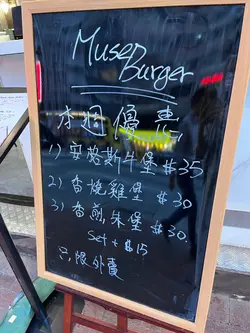 Musen
Burger
本週優惠
1) 安格斯牛堡 $35
2) 香燒雞堡 $30
3) 香煎朱堡 $30.
Set + $15
只限外賣